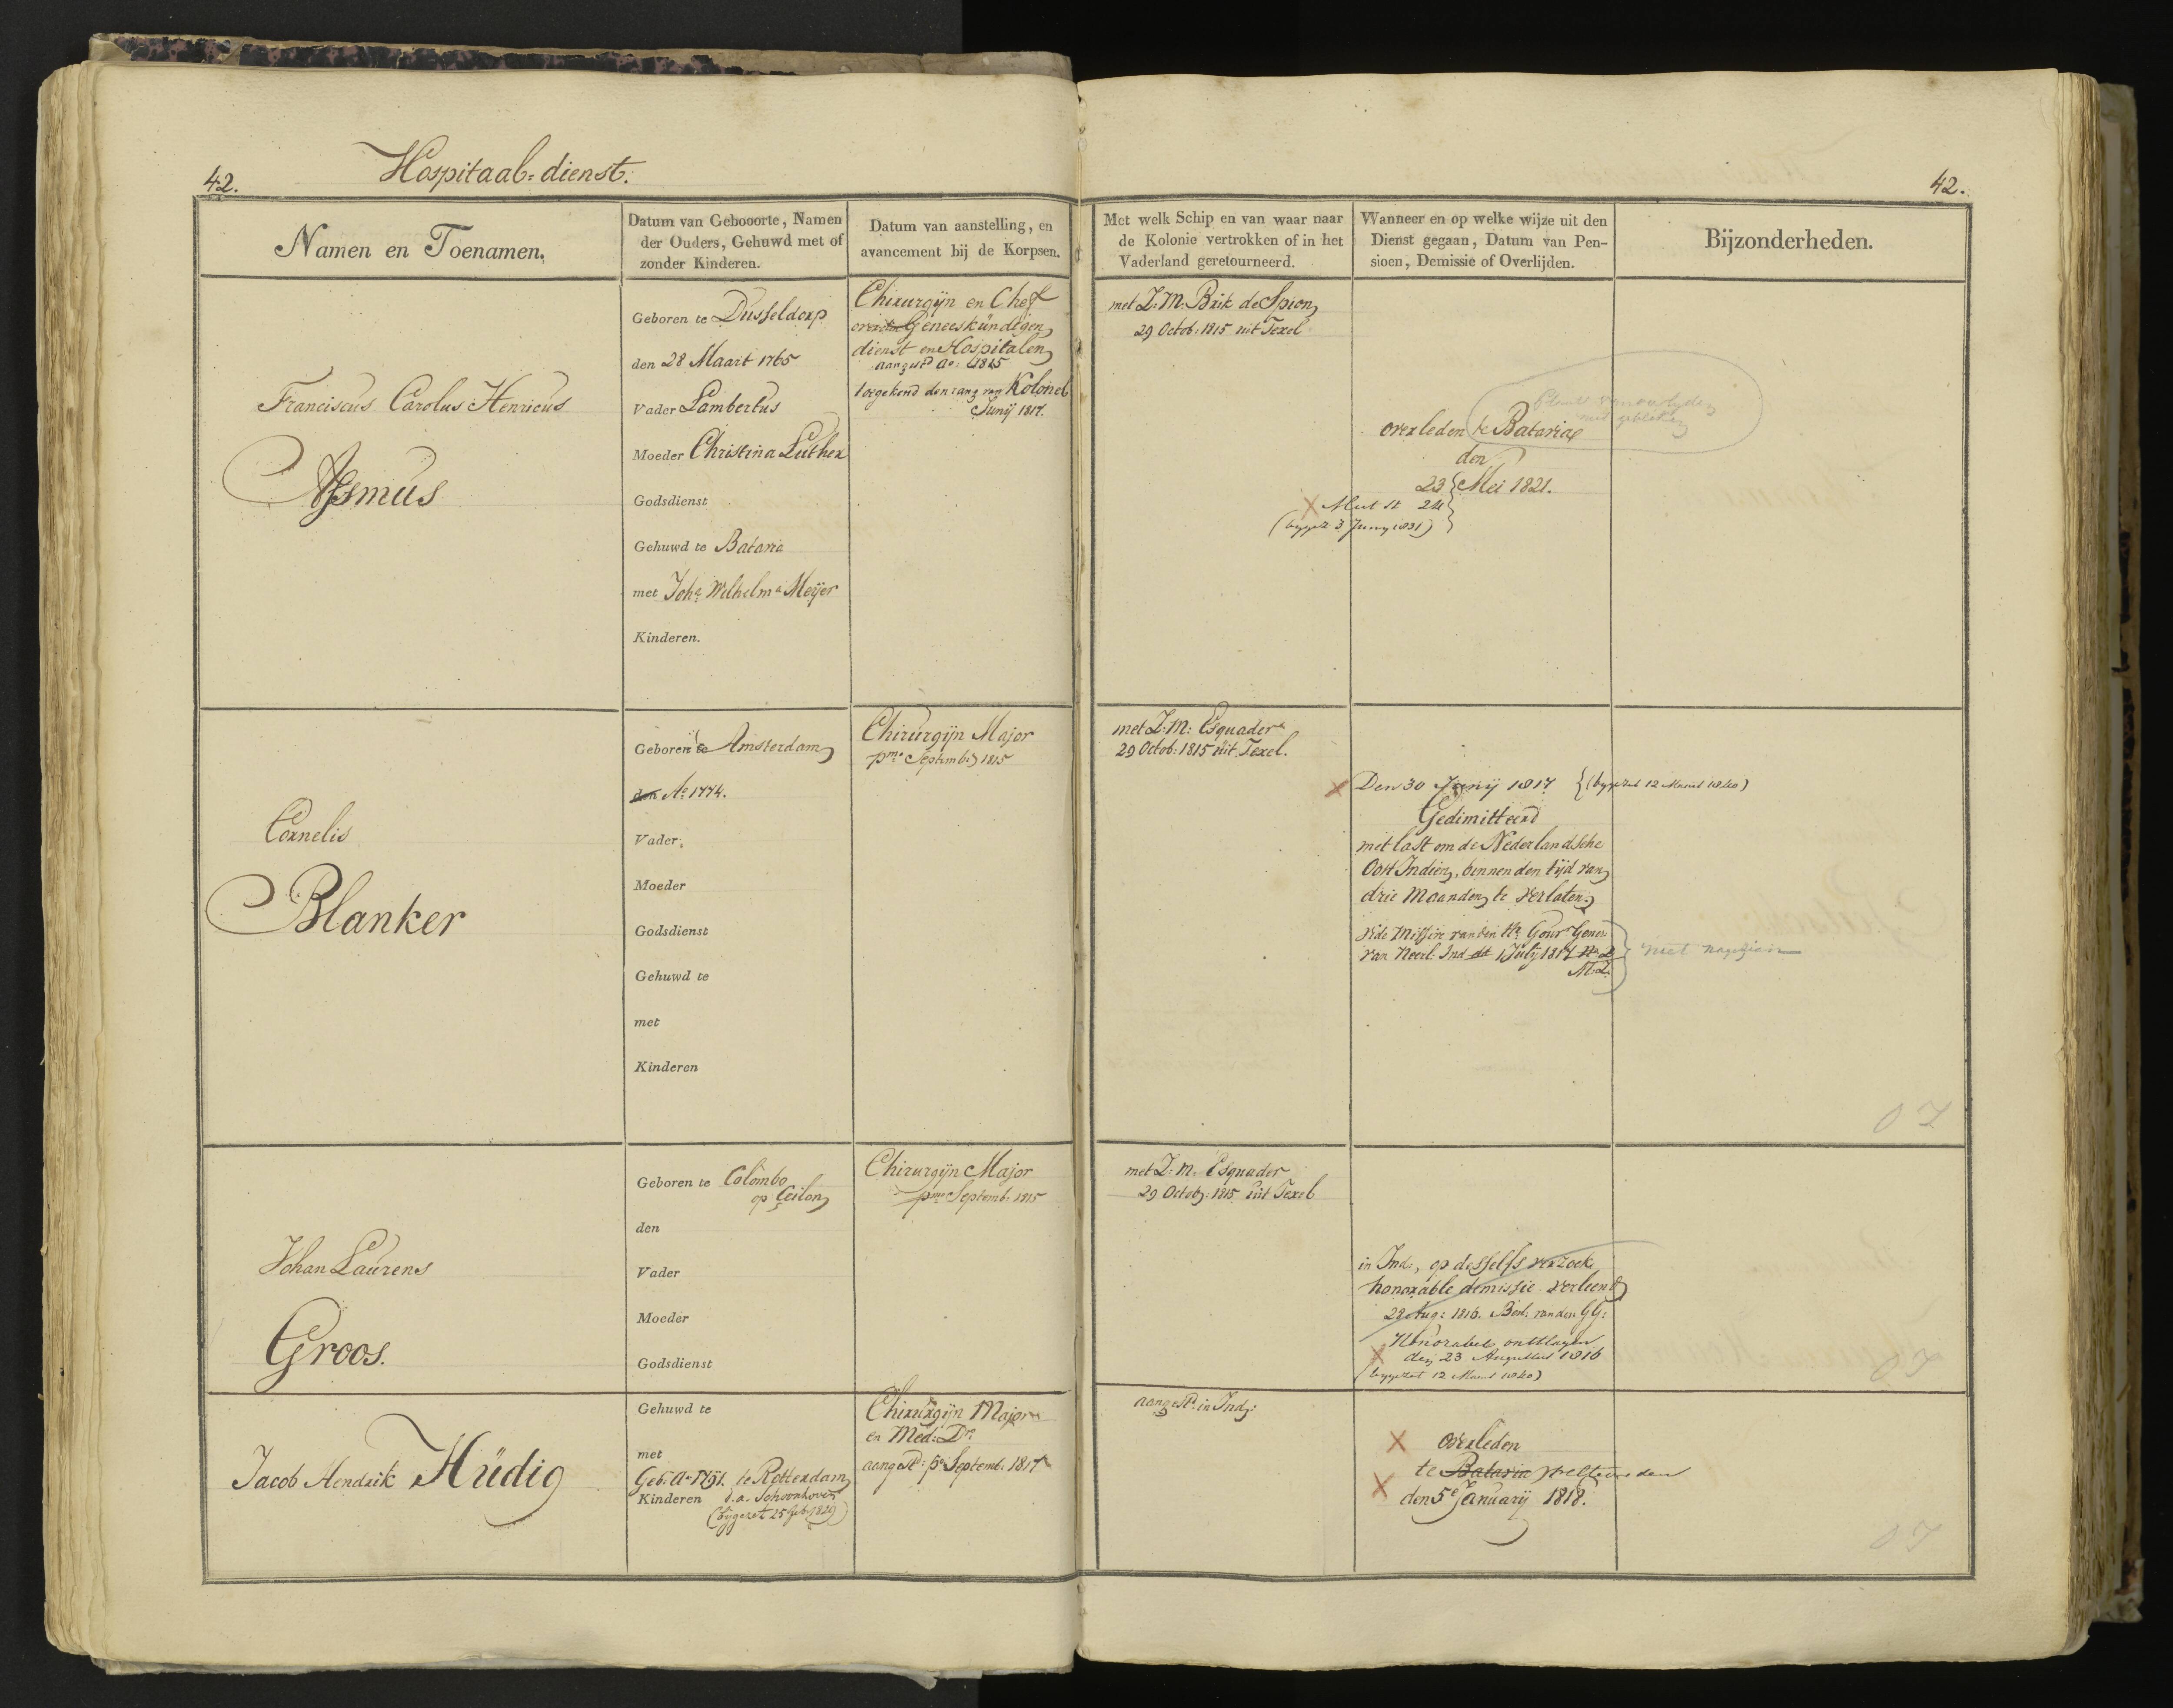 42.
Hospitaal=dienst.
42.
Namen en Toenamen.
Datum van Gebooorte, Namen
der Ouders, Gehuwd met of
zonder Kinderen.
Datum van aanstelling, en
avancement bij de Korpsen.
Met welk Schip en van waar naar
de Kolonie vertrokken of in het
Vaderland geretourneerd.
Wanneer en op welke wijze uit den
Dienst gegaan, Datum van Pen-
sioen, Demissie of Overlijden.
Bijzonderheden.
Franciscus Carolus Henricus
Assmus
Geboren te Dusseldorp
den 28 Maart 1765
Vader Lambertus
Moeder Christina Luther
Godsdienst
Gehuwd te Batavia
met Joha Wilhelma Meijer
Kinderen.
Chirurgijn en Chef
Geneeskündigen
dienst en Hospitalen
Ao: 1815
toegekend den rang van Kolonel
Junij 1817.
met Z:M: Brik de Spion
29 Octob: 1815 uit Texel
overleden te Batavia
den
23 Mei 1821.
24
Cornelis
Blanker
Geboren te Amsterdam
den Ao 1774.
Vader
Moeder
Godsdienst
Gehuwd te
met
Kinderen
Chirurgijn Major
pmo Septemb: 1815
met Z:M: Esquader
29 Octob: 1815 uit Texel.
Den 30 Junij 1817 (bygezet 12 Maart 1840)
Gedimitteerd
met last om de Nederlandsche
Oost Indien, binnen den tijd van
drie Maanden te verlaten.
vide Missive van den Hr Gour Gener
van Neerl. Ind dd 1 Julij 1817 No 2
niet nagezien
O I
Johan Laurens
Groos.
Geboren te Colombo
op Ceilon
den
Vader
Moeder
Godsdienst
Chirurgijn Major
pmo Septemb: 1815
met Z:M: Esquader
29 Octob: 1815 uit Texel
in Ind:, op desselfs verzoek
honorable demissie verleend
28 Aug: 1816. Besl: van den GG:
Honorabel ontslagen
den 23 Augustus 1816
(bygezet 12 Maart 1840)
O I
Jacob Hendrik Hüdig
Gehuwd te
met
Geb: Ao 1791. te Rotterdam
Kinderen d.a. Schoonhoven
(bijgezet 25 Feb: 1829)
Chirurgijn Major
en Med: Dr
aangest: po Septemb: 1817
aangest: in Ind:
overleden
te Batavia Weltevreden
den 5e Januarij 1818.
O I